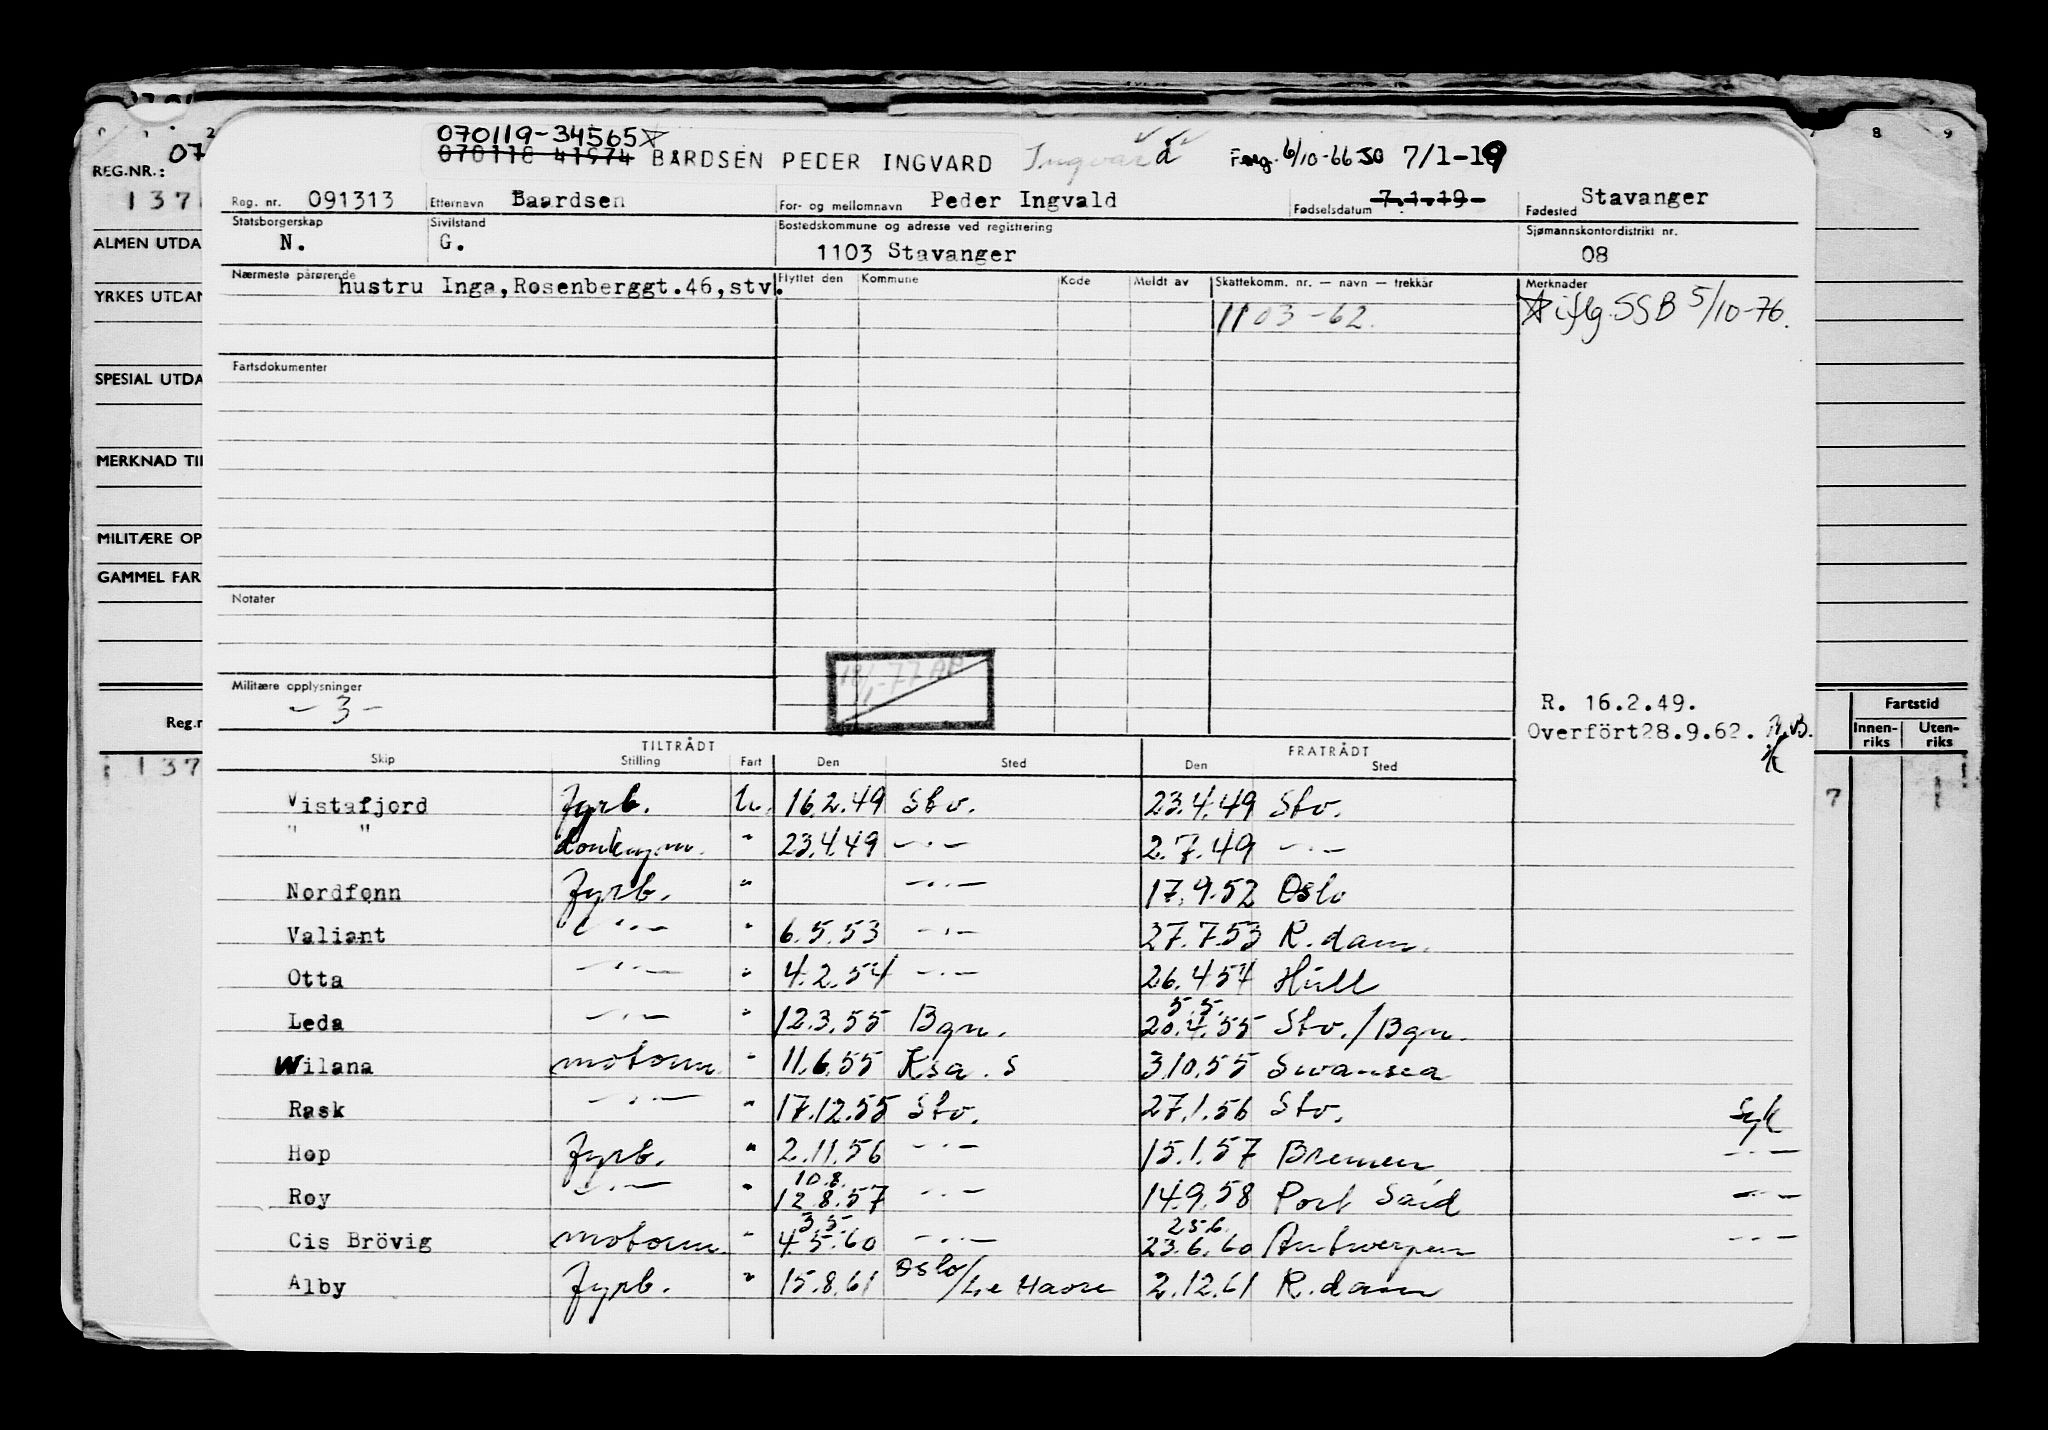 070119-34565
070118 41974 BÅRDSEN PEDER INGVARD Ingvard 6/10-66 SO 7/1-19
REG.NR.: 07
137
Reg. nr. 091313 Etternavn Baardsen For- og mellomnavn Peder Ingvald Fødselsdatum 7.1.19 Fødested Stavanger
Statsborgerskap N. Sivilstand G. Bostedskommune og adresse ved registrering 1103 Stavanger Sjømannskontordistrikt nr. 08
Nærmeste pårørende hustru Inga,Rosenberggt.46,stv. Flyttet den Kommune Kode Meldt av Skattekomm. nr. — navn — trekkår Merknader
1103-62. iflg. SSB 5/10-76.
Fartsdokumenter
ALMEN UTDA
YRKES UTDAN
SPESIAL UTDA
MERKNAD TIL
MILITÆRE OP
GAMMEL FAR
Notater
Militære opplysninger
- 3 -
R. 16.2.49.
Overfört28.9.62.
Reg.n
137
8 9
Fartstid
Innen-riks Uten-riks
7 1
TILTRÅDT FRATRÅDT
Skip Stilling Fart Den Sted Den Sted
Vistafjord fyrb. U. 16.2.49 Stv. 23.4.49 Stv.
" " donkeym. " 23.4.49 —·— 2.7.49 —·—
Nordfonn fyrb. " —··— 17.9.52 Oslo
Valiant —··— " 6.5.53 —·— 27.7.53 R.dam.
Otta —··— " 4.2.54 —·— 26.4.54 Hull
Leda —··— " 12.3.55 Bgn. 5.5. 20.4.55 Stv./Bgn.
Wilana motorm. " 11.6.55 Ksa. S 3.10.55 Swansea
Rask —··— " 17.12.55 Stv. 27.1.56 Stv. Syk
Hop fyrb. " 2.11.56 —··— 15.1.57 Bremen —··—
Roy —··— " 10.8. 12.8.57 —··— 14.9.58 Port Said —··—
Cis Brövig motorm. " 3.5. 4.5.60 —··— 25.6. 23.6.60 Antwerpen —··—
Alby fyrb. " 15.8.61 Oslo/Le Havre 2.12.61 R.dam